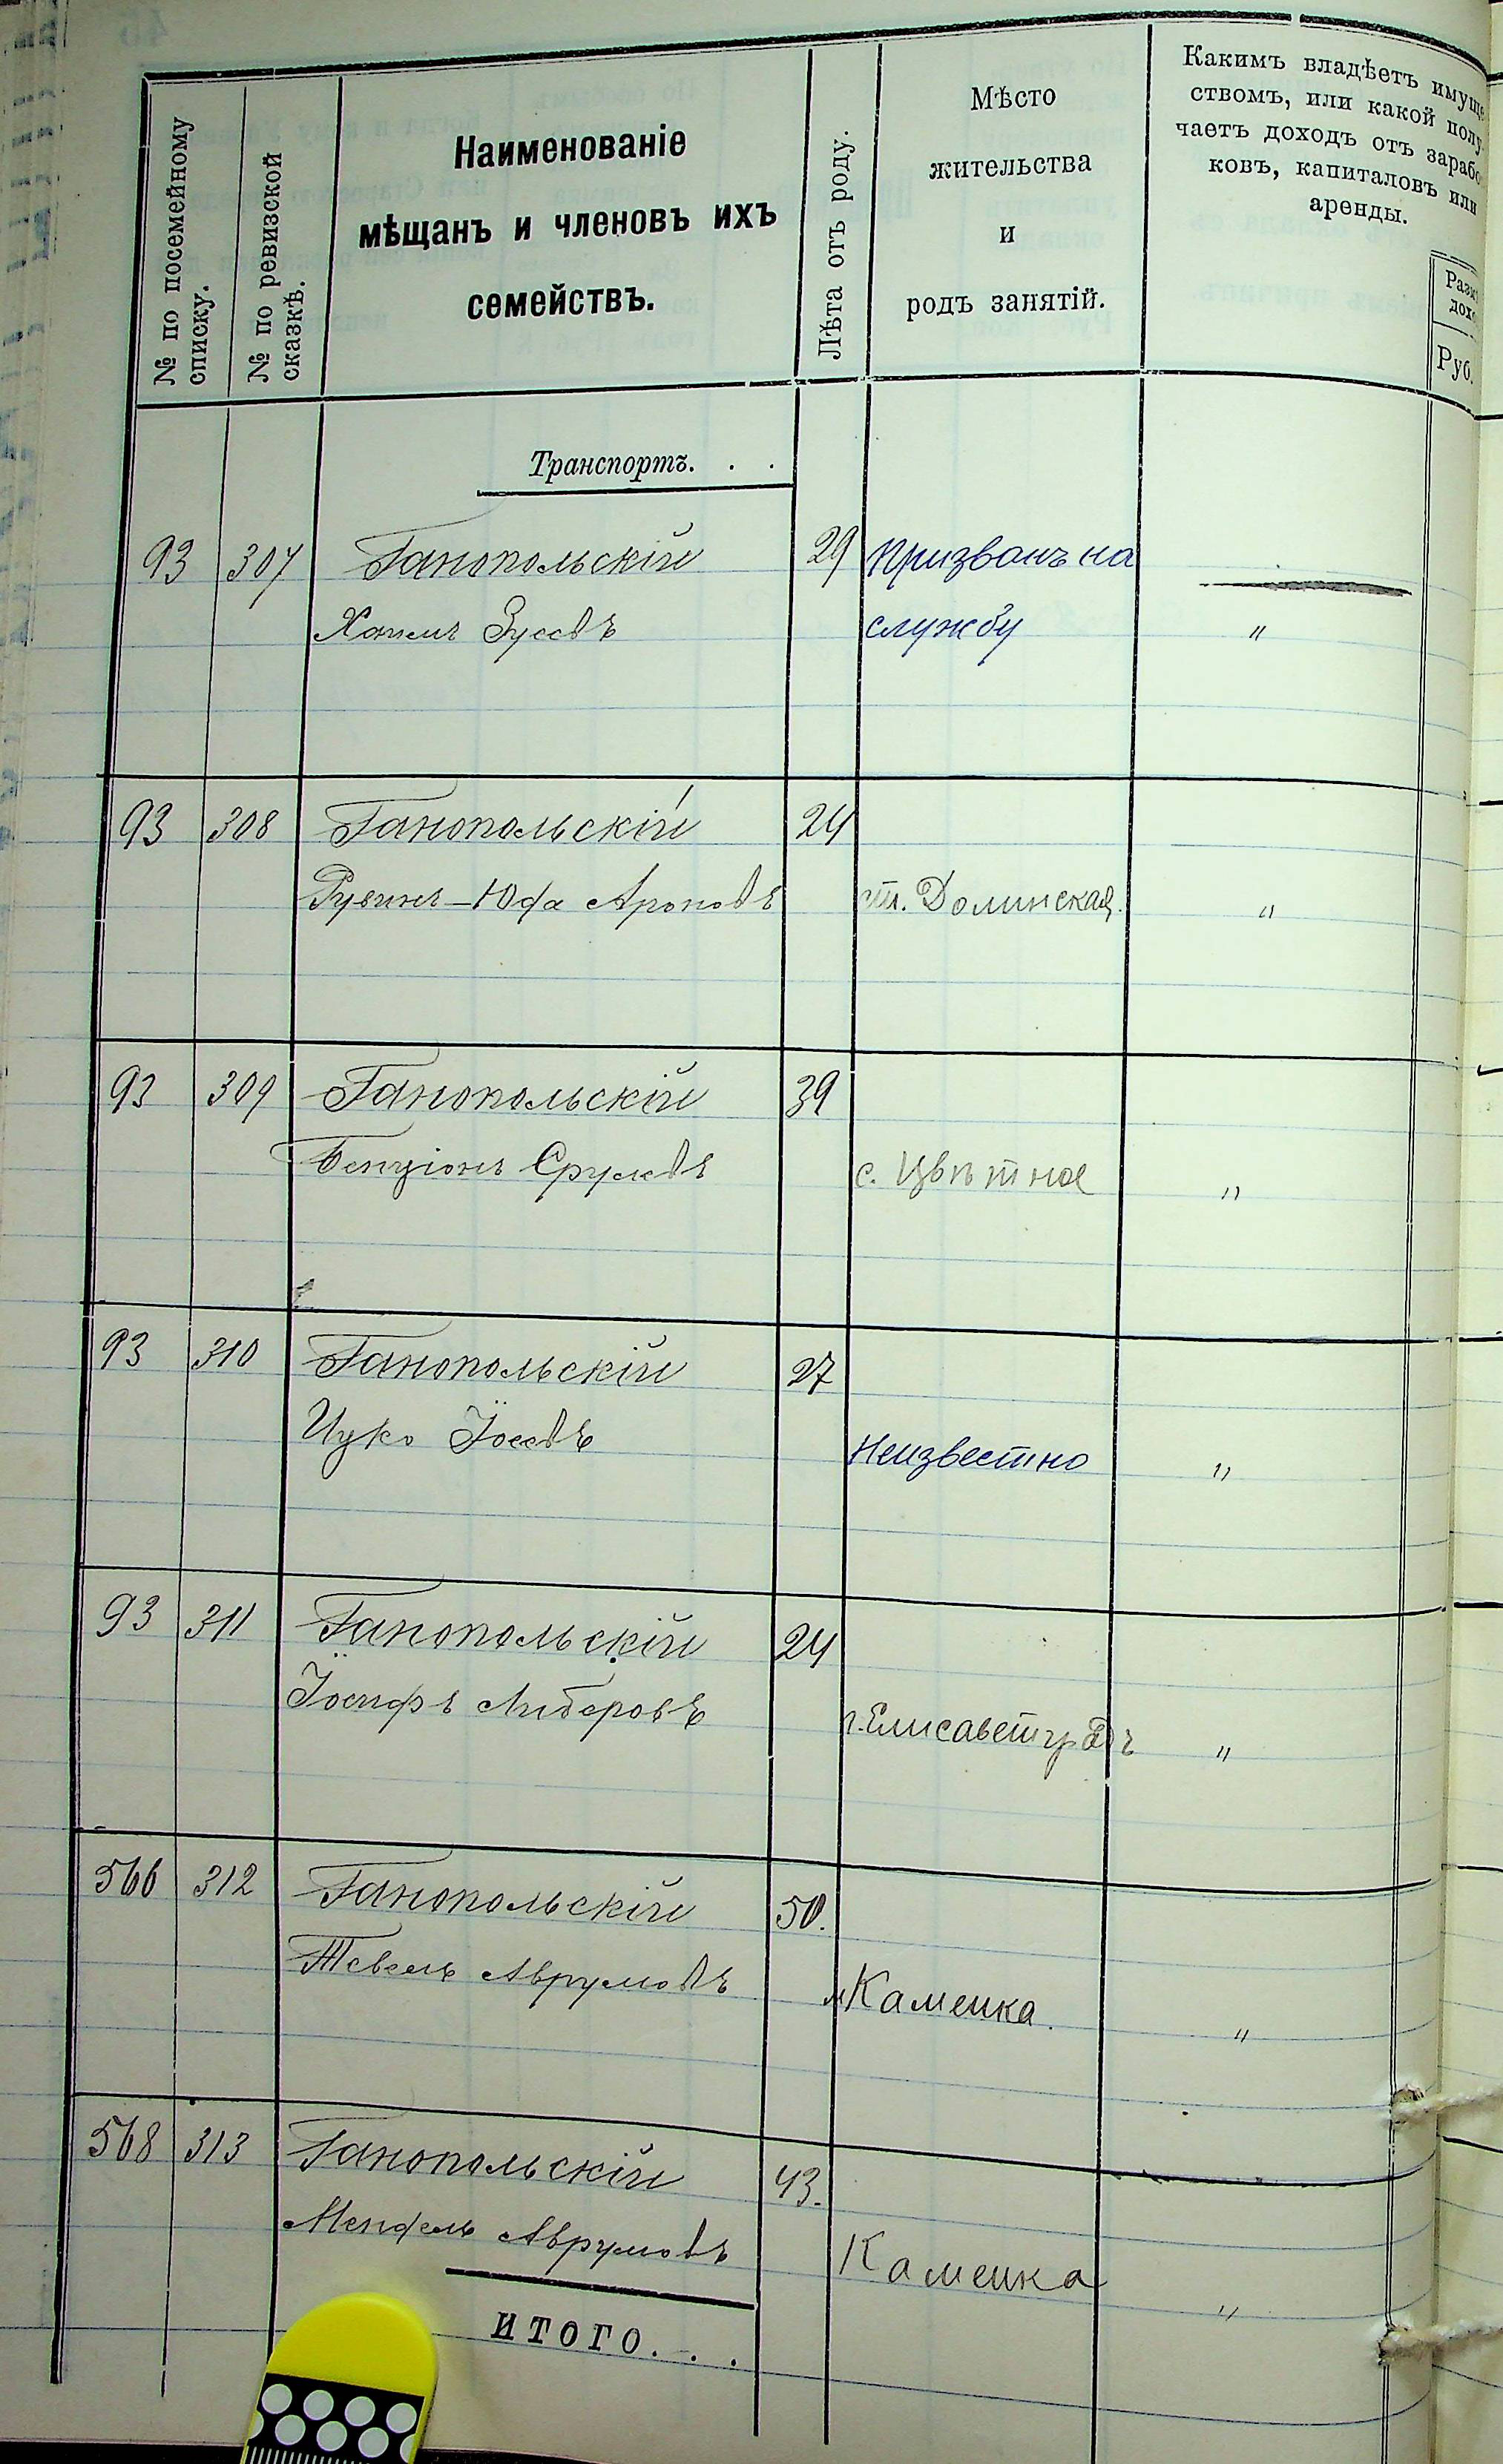 № по посемейному
списку.
№ по ревизской
сказкѣ.
Наименованіе
мѣщанъ и членовъ ихъ
семействъ.
Лѣта отъ роду.
Мѣсто
жительства
и
родъ занятій.
Какимъ владѣетъ имуще
ствомъ, или какой полу
чаетъ доходъ отъ зарабо
ковъ, капиталовъ или
аренды.
Руб.
Транспортъ. . .
93 307 Ганопольскій 29 Призванъ на
Хаимъ Зусевъ службу "
93 308 Ганопольскій 24
Рувинъ-Юфа Ароновъ ст. Долинская. "
93 309 Ганопольскій 39
Бенціонъ Срулевъ с. Цвѣтное "
93 310 Ганопольскій 27
Ицко Іосевъ Неизвестно "
93 311 Ганопольскій 24
Іосифъ Либеровъ г. Елисаветградъ "
566 312 Ганопольскій 50.
Тевель Аврумовъ м Каменка. "
568 313 Ганопольскій 43.
Мендель Аврумовъ Каменка "
ИТОГО. . .